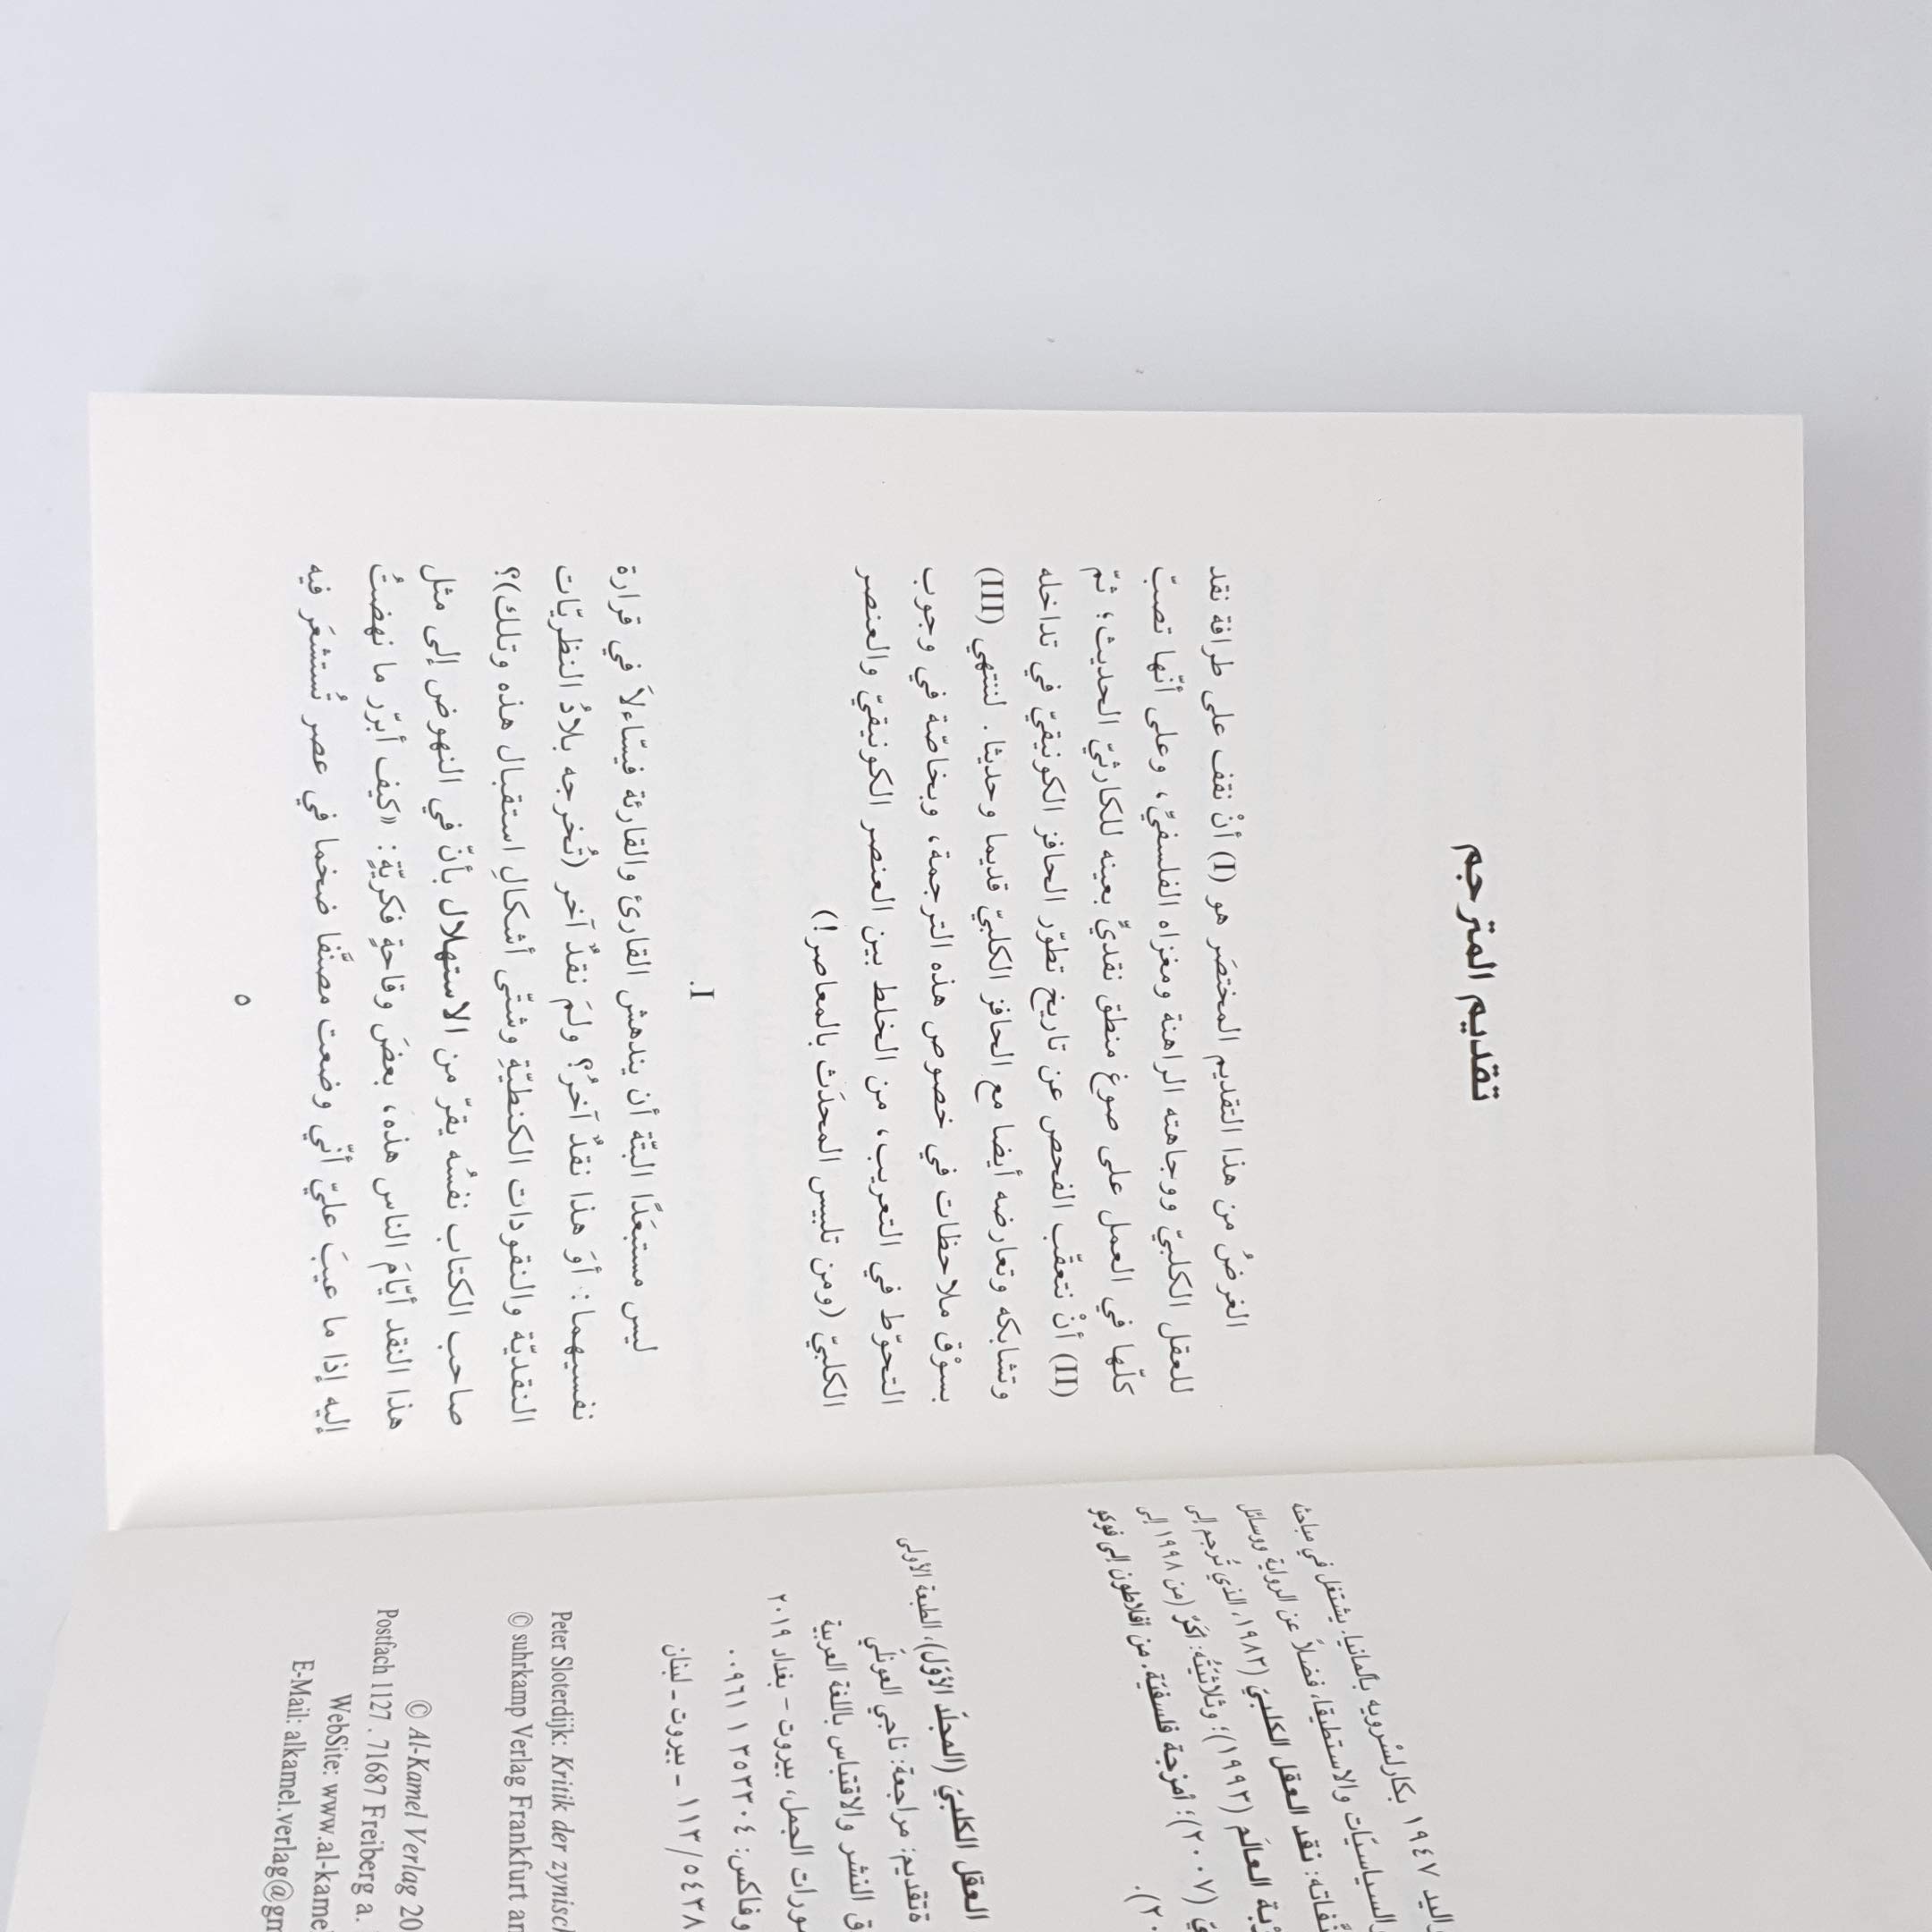 تقديم المترجم
الغرضُ من هذا التقديم المختصَر هو (I) أنْ نقف على طرافة نقد
للعقل الكلبيّ ووجاهته الراهنة ومغزاه الفلسفيّ، وعلى أنّها تصبّ
كلّها في العمل على صوغ منطق نقديٍّ بعينه للكارثيّ الحديث؛ ثمّ
(II) أنْ نتعقّب الفحص عن تاريخ تطوّر الحافز الكونيقيّ في تداخله
وتشابكه وتعارضه أيضا مع الحافز الكلبيّ قديما وحديثا. لننتهي (III)
بسوْق ملاحظات في خصوص هذه الترجمة، وبخاصّة في وجوب
التحوّط في التعريب، من الخلط بين العنصر الكونيقيّ والعنصر
الكلبيّ (ومن تلبيس المحدَث بالمعاصر!)
I.
ليس مستبعَدًا البتّة أن يندهش القارئ والقارئة فيّساءلاَ في قرارة
نفسيهما: أوَ هذا نقدٌ آخرُ؟ ولمَ نقدٌ آخر (تُخرجه بلادُ النظريّات
النقديّة والنقودات الكنطيّةِ وشتّى أشكالِ استقبال هذه وتلك)؟
صاحب الكتاب نفسُه يقرّ من الاستهلال بأنّ في النهوض إلى مثل
هذا النقد أيّامَ الناس هذه، بعضَ وقاحةٍ فكريّةٍ: «كيف أبرّر ما نهضتُ
إليه إذا ما عيبَ عليّ أنّي وضعت مصنَّفا ضخما في عصر تُستشعَر فيه
٥
١٩٤٧ بكارلسْرويه بألمانيا. يشتغل في مباحث
السياسيّات والاستطيقا، فضلاً عن الرواية ووسائل
نقد العقل الكلبيّ (١٩٨٣، الذي تُرجم إلى
العالَم (١٩٩٣)؛ وثلاثيّتُه: أكَرٌ (من ١٩٩٨ إلى
(٢٠٠٧)؛ أمزجة فلسفيّة. من أفلاطون إلى فوكو
العقل الكلبيّ (المجلّد الأوّل)، الطبعة الأولى
تقديم: مراجعة: ناجي العونلّي
النشر والاقتباس باللغة العربية
الجمل، بيروت – بغداد ٢٠١٩
وفاكس: ٣٥٣٣٠٤ ١ ٠٠٩٦١
١١٣/٥٤٣٨ – بيروت – لبنان
Peter Sloterdijk: Kritik der
© suhrkamp Verlag Frankfurt
© Al-Kamel Verlag 20
Postfach 1127 . 71687 Freiberg a.
WebSite: www.al-kame
E-Mail: alkamel.verlag@gm